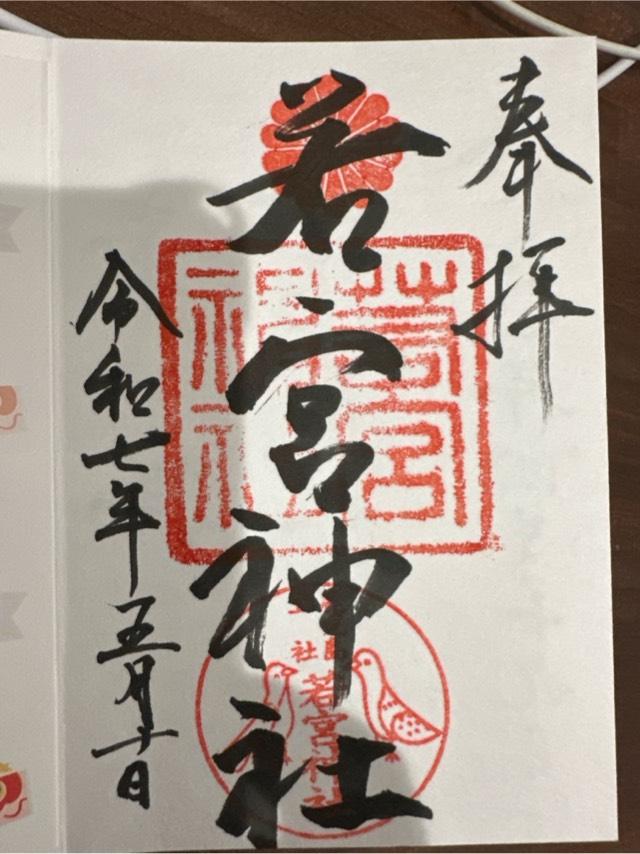 奉拝
若宮神社
若宮
神社
若宮神社
令和七年五月十日